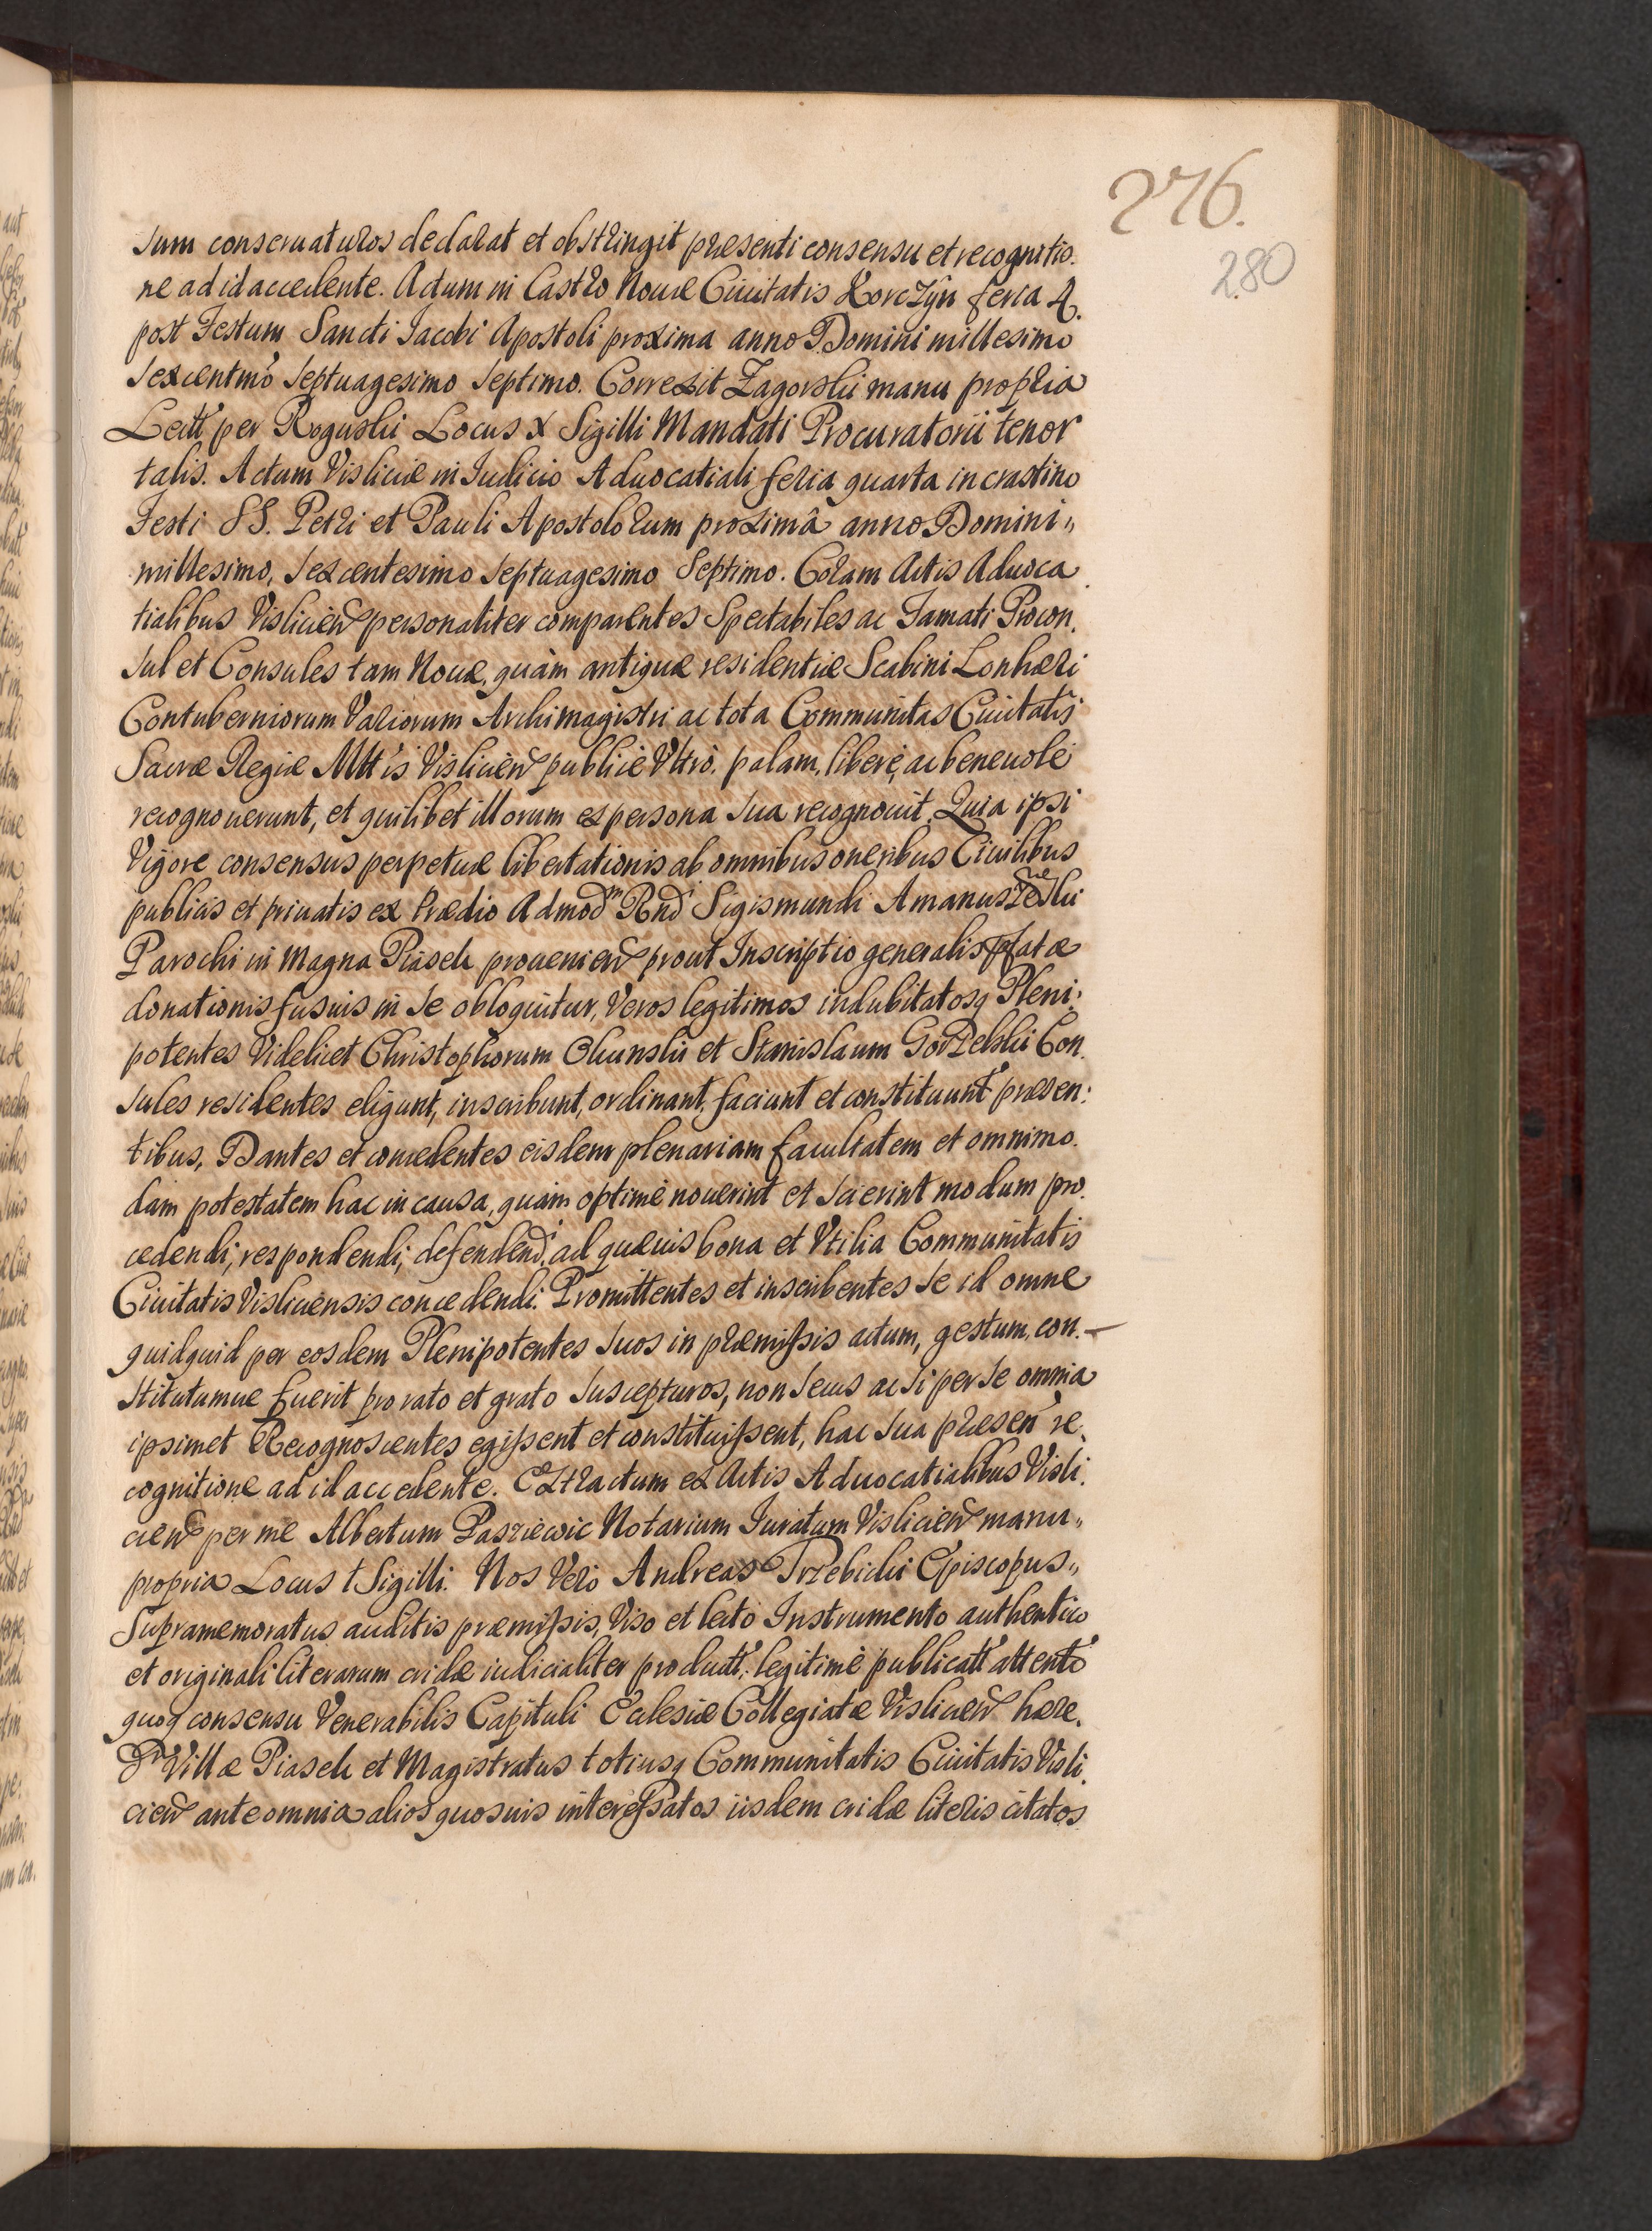 276.
280
sum conseruaturos declarat et obstringit præsenti consensu et recognitio.
ne ad id accedente. Actum in Castro Nouæ Ciuitatis Korczÿn feria 4.
post Festum Sancti Jacobi Apostoli proxima anno Domini millesimo
sexcentmo septuagesimo septimo. Correxit Zagorski manu propria
Lectt per Roguski Locus x Sigilli Mandati Procuratorii tenor
talis. Actum Visliciæ in Iudicio Aduocatiali feria quarta in crastino
Festi SS. Petri et Pauli Apostolorum proximâ anno Domini"
millesimo, sexcentesimo septuagesimo Septimo. Coram Actis Aduoca
tialibus Vislicien personaliter comparentes Spectabiles ac Famati Procon.
sul et Consules tam Nouæ, quàm antiquæ residentiæ Scabini Lonhæri
Contuberniorum Variorum Archimagistri ac tota Communitas Ciuitatis
Sacræ Regiæ Mttis Vislicien publicè Vltrò. palam, liberè, ac beneuolè
recognouerunt, et quilibet illorum ex persona sua recognouit. Quia ipsi
Vigore consensus perpetuæ libertationis ab omnibus oneribus Ciuilibus
publicis et priuatis ex Prædio Admodm Rndi Sigismundi Amanus
Parochi in Magna Piasek prouenien prout Inscriptio generalis pfatæ
donationis fusius in se obloquitur, Veros legitimos indubitatosq Pleni:
potentes Videlicet Christophorum Okunski et Stanislaum Gorzelski Con.
sules residentes eligunt, inscribunt, ordinant, faciunt et constituunt præsen:
tibus, Dantes et concedentes eisdem plenariam facultatem et omnimo.
dam potestatem hac in causa, quàm optimè nouerint et scierint modum pro.
cedendi, respondendi, defendend, ad quæuis bona et Vtilia Communitatis
Ciuitatis Visliciensis concedendi. Promittentes et inscribentes se id omne
quidquid per eosdem Plenipotentes suos in præmissis actum, gestum, con.
stitutumue fuerit pro rato et grato suscepturos, non secus ac si per se omnia
ipsimet Recognoscentes egissent et constituissent, hac sua præsen re.
cognitione ad id accedente. Extractum ex Actis Aduocatialibus Visli.
cien per me Albertum Paszíewic Notarium Iuratum Vislicien manu"
propria Locus t Sigilli. Nos Verò Andreas Trzebicki Episcopus"
Supramemoratus auditis præmissis, Viso et lecto Instrumento authentico
et originali literarum cridæ iudicialiter productt, legitimè publicatt attento
quoq consensu Venerabilis Capituli Ecclesiæ Collegiatæ Vislicien hære.
d Villæ Piasek et Magistratus totiusq Communitatis Ciuitatis Visli.
cien ante omnia alios quosuis interessatos iisdem cridæ literis citatos